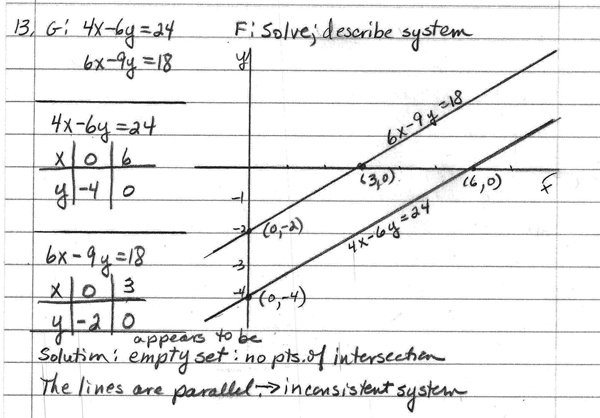 13. G: 4x-6y=24 F: Solve; describe system
6x-9y=18
y
4x-6y=24
x 0 6
y -4 0
6x-9y=18
(3,0)
(6,0)
x
-1
-2
(0,-2)
4x-6y=24
-3
-4
(0,-4)
6x-9y=18
x 0 3
y -2 0
appears to be
Solution: empty set: no pts. of intersection
The lines are parallel. → inconsistent system